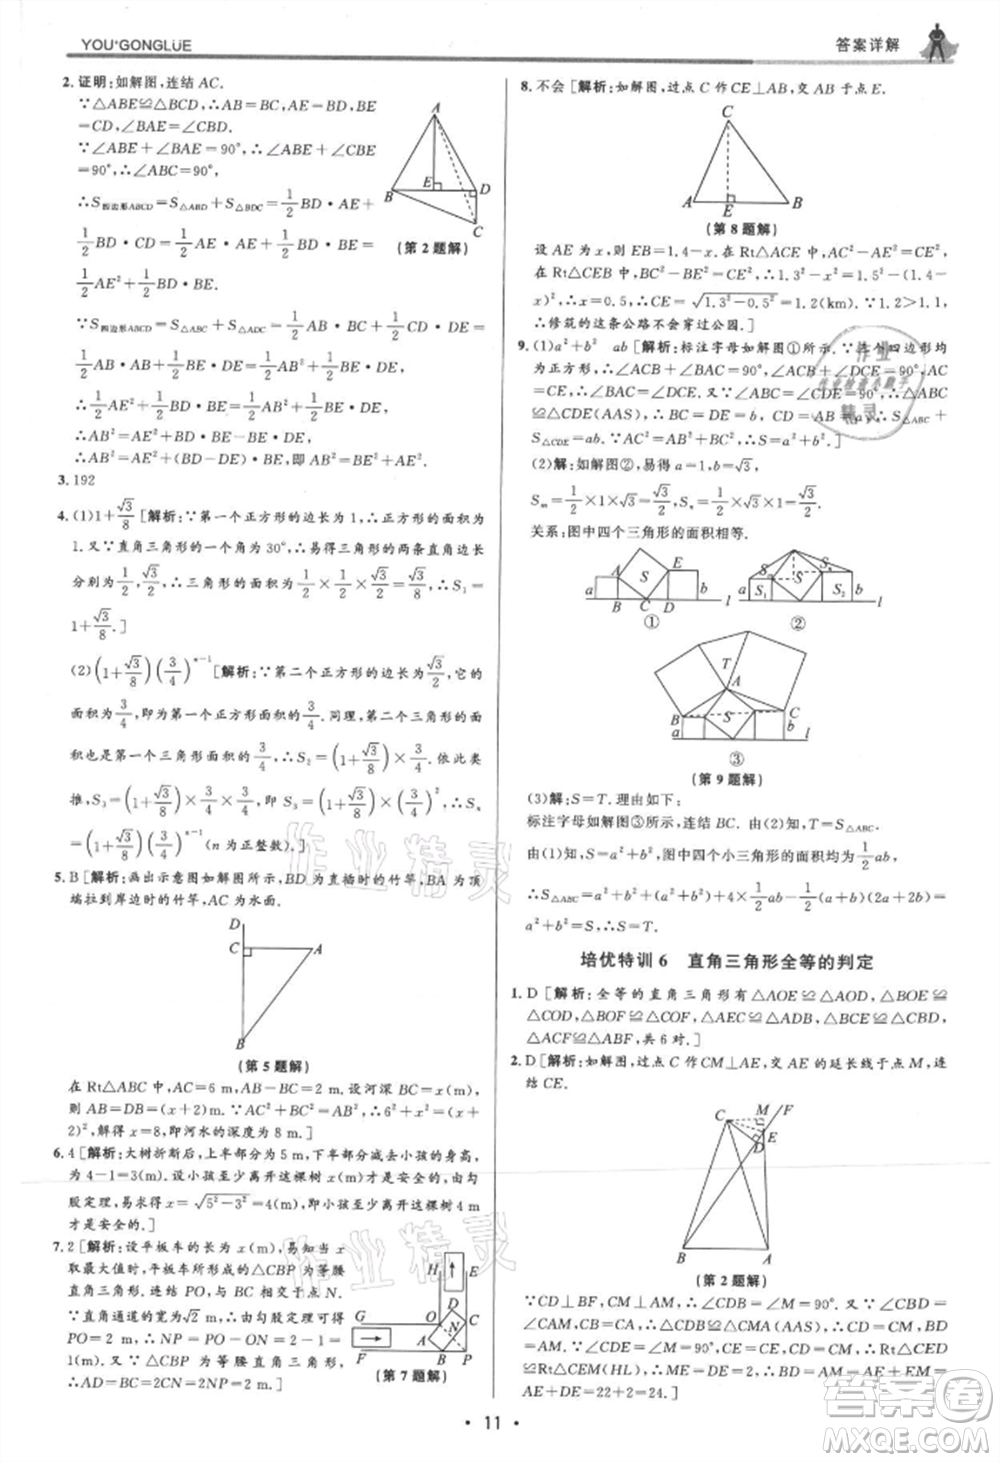 YOU⁺GONGLÜE
答案详解
2. 证明:如解图,连结 AC.
∵△ABE≌△BCD,∴AB=BC,
∴∠BAE=∠CBD.
∵∠ABE+∠BAE=90°,∴∠ABE+∠CBD=90°,∴∠ABC=90°.
∴S四边形ABCD=S△ABD+S△BDC=1/2 BD·AE+
1/2 BD·CD=1/2 BD·AE+1/2 BD·
BE=1/2 AE²+1/2 BD·BE.
∵S四边形ABCD=S△ABC+S△ADC=1/2 AB·BC+1/2 CD·DE=1/2
AB·AB+1/2 BE·DE=1/2 AB²+1/2 BE·DE,
∴1/2 AE²+1/2 BD·BE=1/2 AB²+1/2 BE·DE,
∴AB²=AE²+(BD-DE)·BE,即AB²=AE²+BE².
A
B
E
D
C
(第 2 题解)
3. 192
4. (1)1+√3/8 [解析:∵第一个正方形的边长为 1,∴正方形的面积为
1. 又∵直角三角形的一个角为 30°,∴易得三角形的两条直角边长
分别为 1/2, √3/2,∴三角形的面积为 1/2×1/2×√3/2=√3/8,∴S₁=
1+√3/8.]
(2)(1+√3/8)(3/4)ⁿ⁻¹ [解析:∵第二个正方形的边长为 √3/2,它的
面积为 3/4,即为第一个正方形面积的 3/4. 同理,第二个三角形的面
积也为第一个三角形面积的 3/4,∴S₂=(1+√3/8)×3/4. 依此类
推,S₃=(1+√3/8)×3/4×3/4,即S₃=(1+√3/8)×(3/4)²,…,∴Sₙ
=(1+√3/8)(3/4)ⁿ⁻¹(n 为正整数).]
5. B [解析:画出示意图如解图,BD 为直插时的竹竿,BA 为顶
端拉到岸边时的竹竿,AC 为水面.
D
C
A
B
(第 5 题解)
在 Rt△ABC 中,AC=6 m,AB-BC=2 m. 设河深 BC=x(m),
则AB=(2+x)m. ∵AC²+BC²=AB²,∴6²+x²=(x+
2)²,解得 x=8,即河水的深度为 8 m.]
6. 4 [解析:大树折断后,上半部分为 5 m,下半部分减去小孩的身高,
为 4-1=3(m). 设小孩至少离开这棵树 x(m)才是安全的,根据勾
股定理,可得 x=√5²-3²=4(m),故小孩至少离开这棵树 4 m
才是安全的.]
7. 2 [解析:设平板车的长为 x(m),易知当 x
取最大值时,平板车所形成的△CBP 为等腰
直角三角形,连结 PO,与 BC 相交于点 N.
∵直角通道的宽为√2 m,∴由勾股定理可得
PO=2 m,∴NP=PO-ON=2-1=
1(m). 又∵△CBP 为等腰直角三角形,
∴AD=BC=2CN=2NP=2(m).]
H
I
G
O
D
C
A
N
F
B
P
(第 7 题解)
8. 不会 [解析:如解图,过点 C 作 CE⊥AB,交 AB 于点 E.
C
A
E
B
(第 8 题解)
设 AE 为 x,则 EB=1.4-x. 在 Rt△ACE 中,AC²-AE²=CE²,
在 Rt△CEB 中,BC²-BE²=CE²,∴1.3²-x²=1.2²-(1.4-
x)²,∴x=0.5,∴CE=√1.3²-0.5²=1.2(km). ∵1.2>1.1,
∴修筑的这条公路不会穿过公园.]
9. (1)a²+b² ab [解析:标注字母如解图①所示. ∵这个四边形均
为正方形,∴∠BAC=∠DCE,AC=CE. 又∵∠ABC=
∠CDE=90°,∠BAC=∠DCE,∠ABC=∠CDE,∴△ABC
≌△CDE(AAS),∴BC=DE=b,CD=AB=a,∴S△ABC+
S△CDE=ab.]
(2)解:如解图②,易得 a=1,b=√3,
Sₘ=1/2×1×√3=√3/2,Sₙ=1/2×1×√3=√3/2,
关系:图中四个三角形的面积相等.
A
E
S
a
b
B
C
D
l
①
a
S₁
S
S₂
b
l
②
T
A
B
S
C
a
b
l
③
(第 9 题解)
(3)解:S=T. 理由如下:
标注字母如解图③所示,连结 BC. 由(2)知,T=S△ABC.
由(1)知,S=a²+b²,图中四个小三角形的面积均为 1/2 ab,
∴S△ABC=a²+b²+(a²+b²)+4×1/2 ab-1/2(a+2b)(2a+2b)=
a²+b²,∴S=T.
培优特训 6 直角三角形全等的判定
1. D [解析:全等的直角三角形有△AOE≌△AOD,△BOE≌
△COD,△BOF≌△COF,△ACE≌△ADB,△BCE≌△CBD,
△ACF≌△ABF,共 6 对.]
2. D [解析:如解图,过点 C 作 CM⊥AE,交 AE 的延长线于点 M,连
结 CE.
C
M
F
D
E
B
A
(第 2 题解)
∵CD⊥BF,∴∠CDA=∠M=90°. ∵∠CAD=
∠CAM,CA=CA,∴△CDA≌△CMA(AAS),∴CD=CM,
AD=AM. ∵CE=CE,∠CDE=∠M=90°,∴Rt△CED
≌Rt△CEM(HL),∴DE=ME,∴AD=AM=AE+EM=AE
+DE=22+2=24.]
· 11 ·
作业精灵
作业检查小助手
精灵
作业精灵
作业精灵
答案圈
MXQE.COM